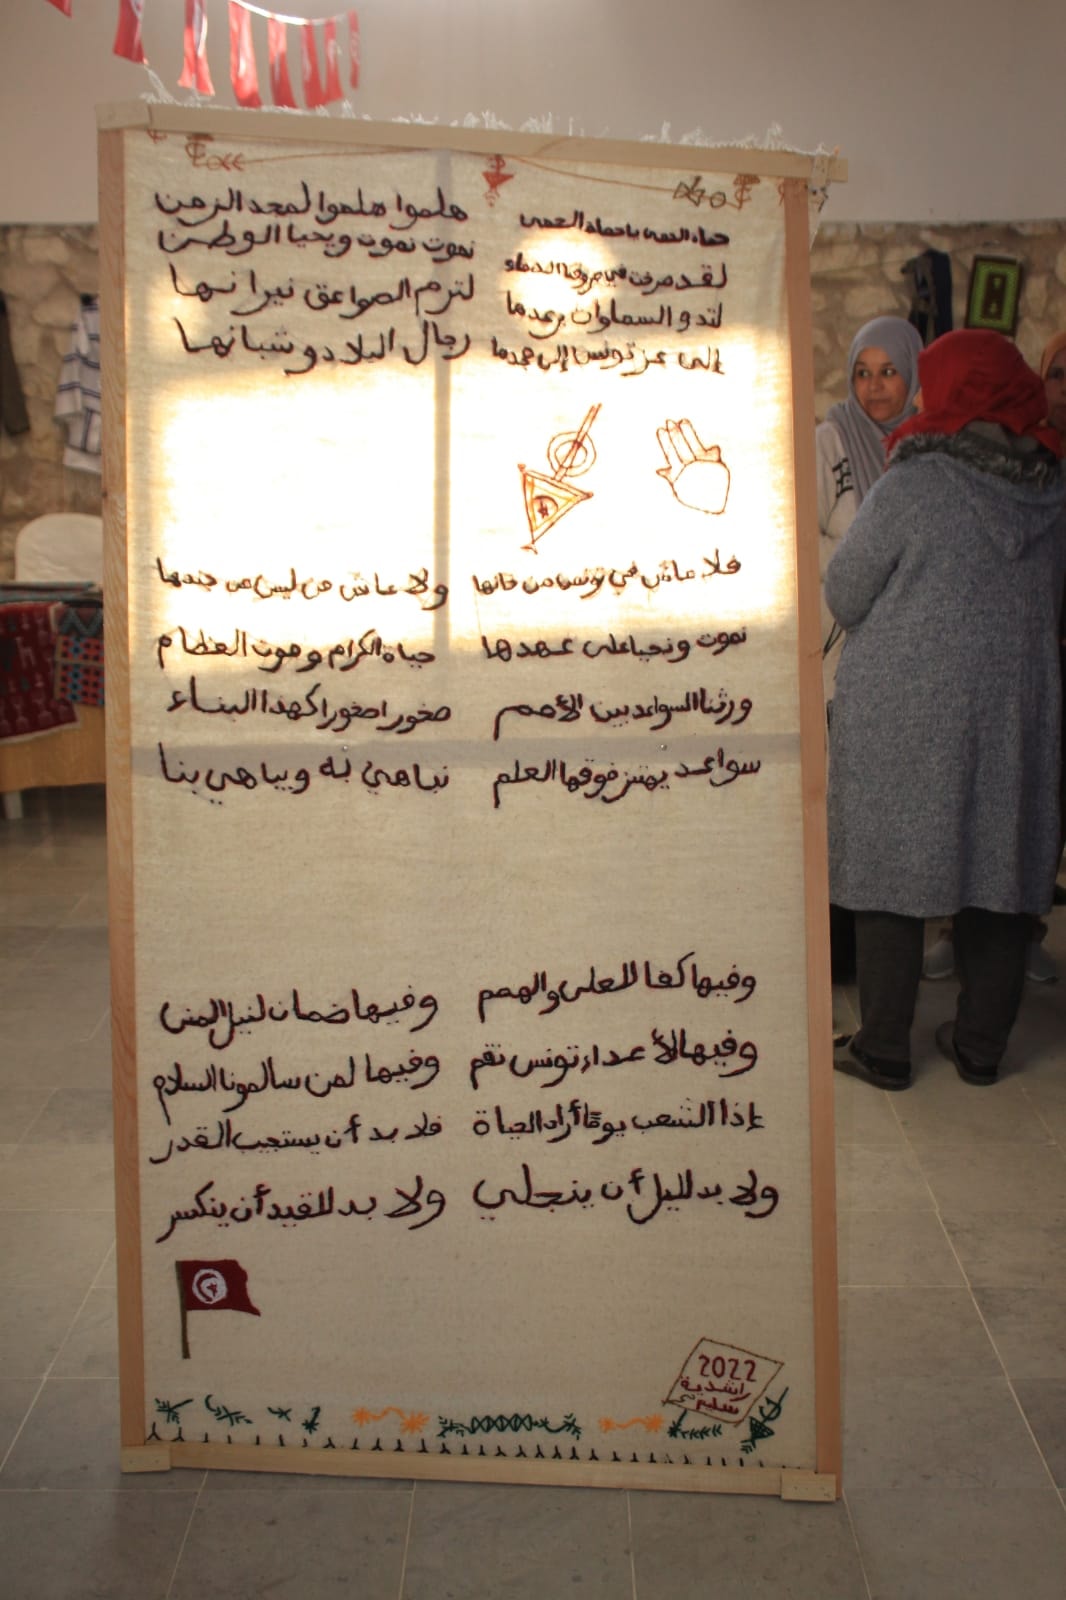 حماة الحمى يا حماة الحمى هلموا هلموا لمجد الزمن
لقد صرخت في عروقنا الدماء نموت نموت ويحيا الوطن
لتدو السماوات برعدها لترم الصواعق نيرانها
إلى عز تونس إلى مجدها رجال البلاد وشبانها
فلا عاش في تونس من خانها ولا عاش من ليس من جندها
نموت ونحيا على عهدها حياة الكرام وموت العظام
ورثنا السواعد بين الأمم صخورا صخورا كهذا البناء
سواعد يهتز فوقها العلم نباهي به ويباهي بنا
وفيها كفا للعلى والهمم وفيها ضمان لنيل المنى
وفيها لأعداء تونس نقم وفيها لمن سالمونا السلام
إذا الشعب يومًا أراد الحياة فلا بد أن يستجيب القدر
ولا بد لليل أن ينجلي ولا بد للقيد أن ينكسر
2022
راشدية